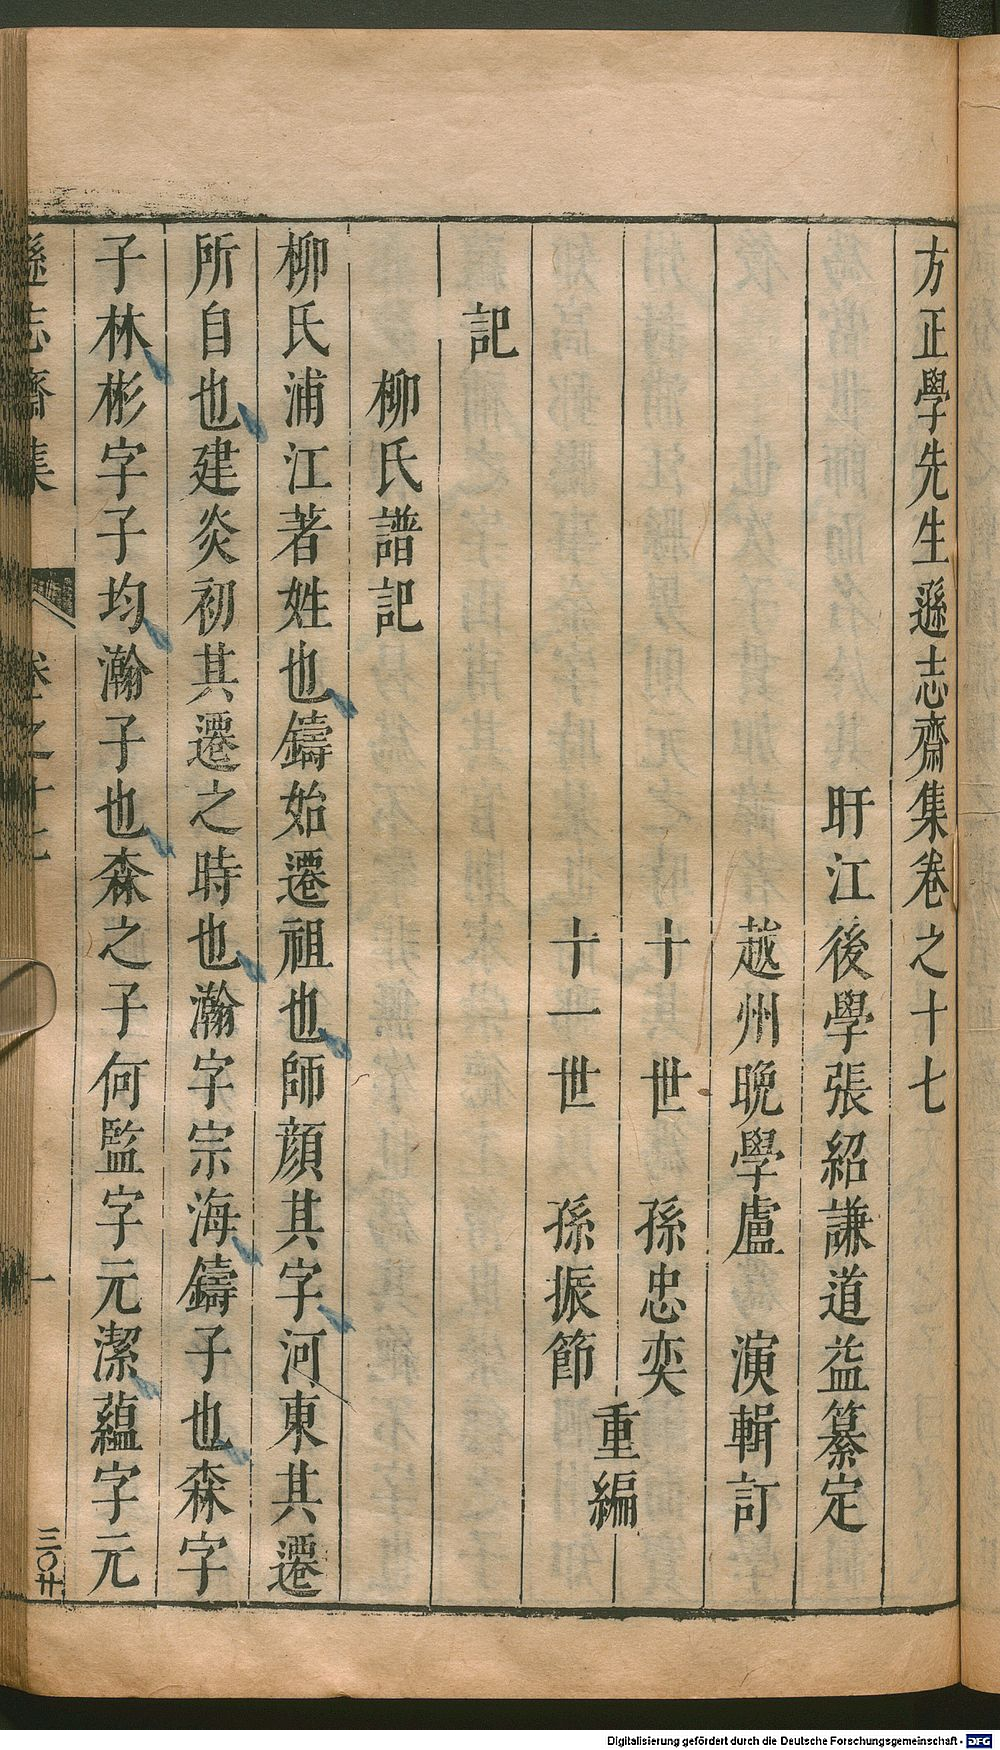 方正學先生遜志齋集卷之十七
盱江後學張紹謙道益纂定
越州晚學盧演輯訂
十世孫忠奕
十一世孫振節
重編
記
柳氏譜記
柳氏浦江著姓也鑄始遷祖也師顔其字河東其遷
所自也建炎初其遷之時也瀚字宗海鑄子也森字
子林彬字子均瀚子也森之子何監字元潔蘊字元
遜志齋集 卷之十七 一 三〇卄
Digitalisierung gefördert durch die Deutsche Forschungsgemeinschaft - DFG